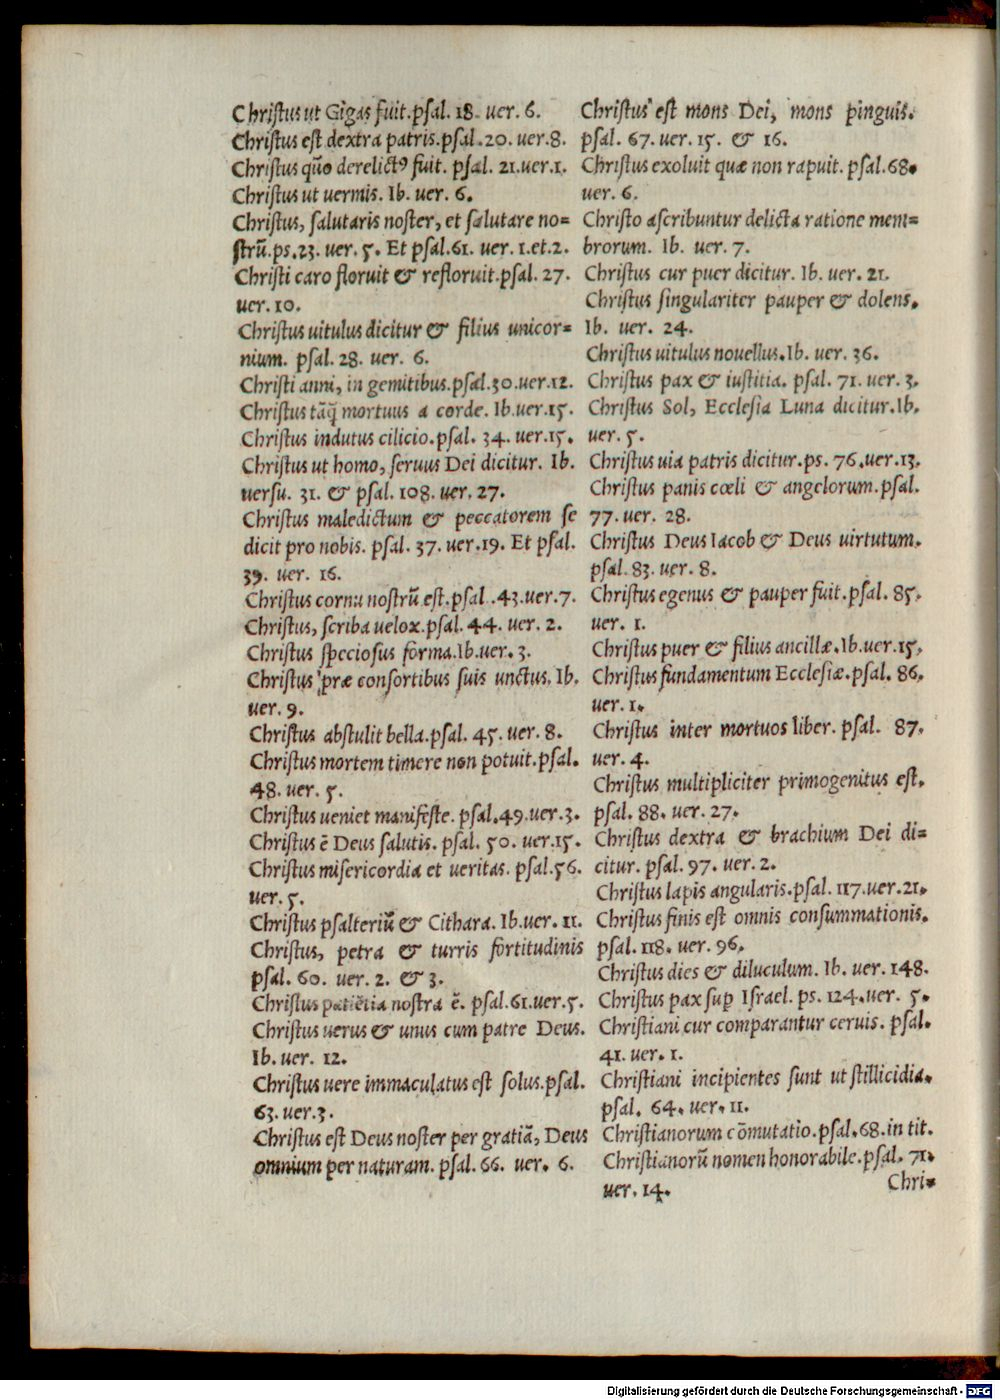 Christus ut Gigas fuit.psal. 18. uer. 6.
Christus est dextra patris.psal.20. uer.8.
Christus quō derelictꝰ fuit. psal. 21.uer.1.
Christus ut uermis. Ib. uer. 6.
Christus, salutaris noster, et salutare no=
strū.ps.23. uer. 5. Et psal.61. uer. 1.et.2.
Christi caro floruit & refloruit.psal. 27.
uer. 10.
Christus uitulus dicitur & filius unicor=
nium. psal. 28. uer. 6.
Christi anni, in gemitibus.psal.30.uer.12.
Christus tāq̄ mortuus a corde. Ib.uer.15.
Christus indutus cilicio.psal. 34. uer.15.
Christus ut homo, seruus Dei dicitur. Ib.
uersu. 31. & psal. 108. uer. 27.
Christus maledictum & peccatorem se
dicit pro nobis. psal. 37. uer.19. Et psal.
39. uer. 16.
Christus cornu nostrū est.psal .43.uer.7.
Christus, scriba uelox.psal. 44. uer. 2.
Christus speciosus forma.Ib.uer. 3.
Christus præ consortibus suis unctus. Ib.
uer. 9.
Christus abstulit bella.psal. 45. uer. 8.
Christus mortem timere non potuit.psal.
48. uer. 5.
Christus ueniet manifeste. psal.49.uer.3.
Christus ē Deus salutis. psal. 50. uer.15.
Christus misericordia et ueritas. psal.56.
uer. 5.
Christus psalteriū & Cithara. Ib.uer. 11.
Christus, petra & turris fortitudinis
psal. 60. uer. 2. & 3.
Christus patiētia nostra ē. psal.61.uer.5.
Christus uerus & unus cum patre Deus.
Ib. uer. 12.
Christus uere immaculatus est solus.psal.
63. uer.3.
Christus est Deus noster per gratiā, Deus
omnium per naturam. psal. 66. uer. 6.
Christus est mons Dei, mons pinguis.
psal. 67. uer. 15. & 16.
Christus exoluit quæ non rapuit. psal.68.
uer. 6.
Christo ascribuntur delicta ratione mem=
brorum. Ib. uer. 7.
Christus cur puer dicitur. Ib. uer. 21.
Christus singulariter pauper & dolens.
Ib. uer. 24.
Christus uitulus nouellus.Ib. uer. 36.
Christus pax & iustitia. psal. 71. uer. 3.
Christus Sol, Ecclesia Luna dicitur.Ib.
uer. 5.
Christus uia patris dicitur.ps. 76.uer.13.
Christus panis cœli & angelorum.psal.
77. uer. 28.
Christus Deus Iacob & Deus uirtutum.
psal. 83. uer. 8.
Christus egenus & pauper fuit.psal. 85.
uer. 1.
Christus puer & filius ancillæ.Ib.uer.15.
Christus fundamentum Ecclesiæ.psal. 86.
uer. 1.
Christus inter mortuos liber. psal. 87.
uer. 4.
Christus multipliciter primogenitus est.
psal. 88. uer. 27.
Christus dextra & brachium Dei di=
citur. psal. 97. uer. 2.
Christus lapis angularis.psal. 117.uer.21.
Christus finis est omnis consummationis.
psal. 118. uer. 96.
Christus dies & diluculum. Ib. uer. 148.
Christus pax suꝑ Israel. ps. 124.uer. 5.
Christiani cur comparantur ceruis. psal.
41. uer. 1.
Christiani incipientes sunt ut stillicidia.
psal. 64. uer. 11.
Christianorum cōmutatio.psal.68.in tit.
Christianorū nomen honorabile.psal. 71.
uer. 14.
Chri=
Digitalisierung gefördert durch die Deutsche Forschungsgemeinschaft - DFG